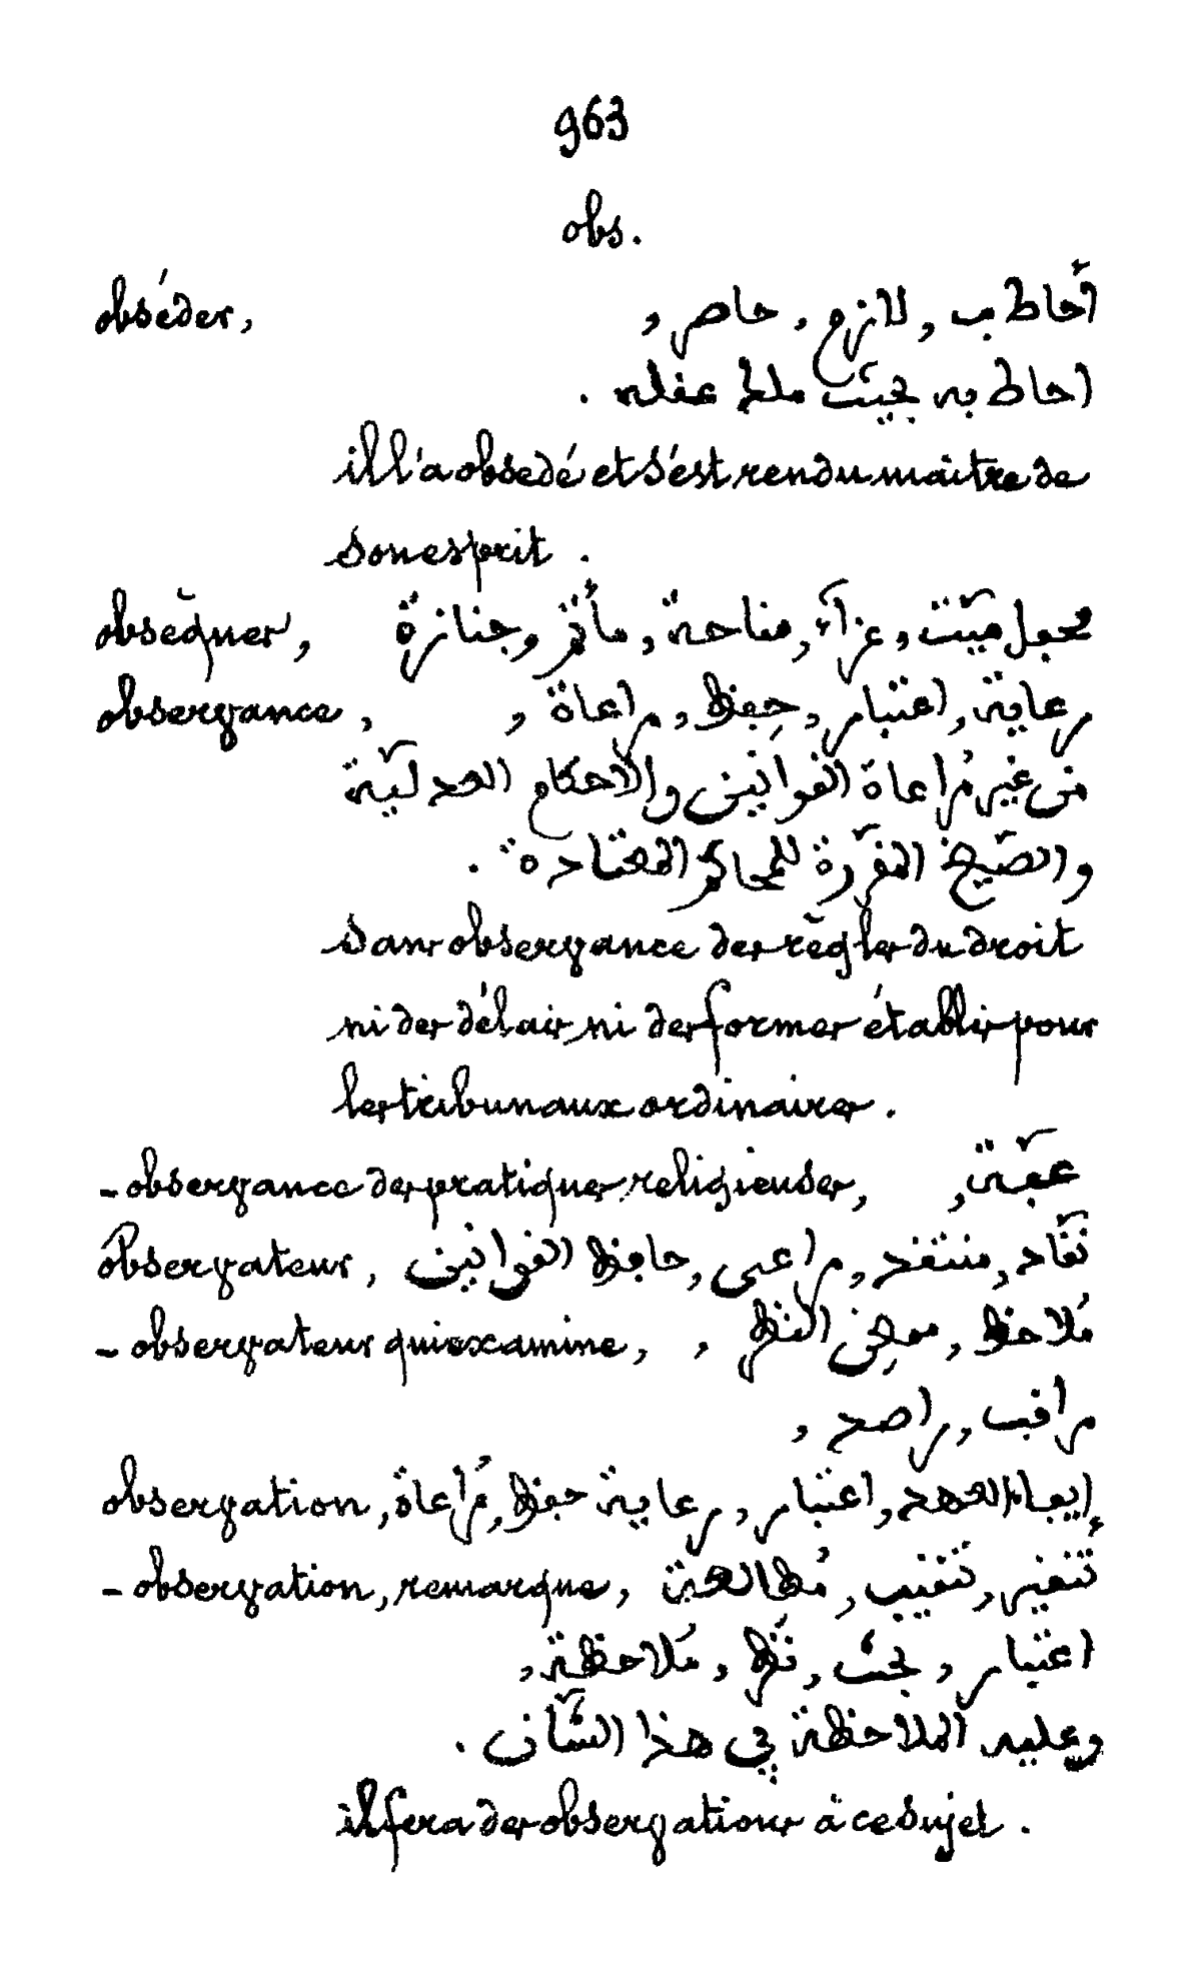 963
obs.
obséder, أحاط ب, لازم, حاصر,
احاط به بحيث ملط عقله.
il l'a obsedé et s'est rendu maitre de
son esprit.
obsèques, محبل ميّت, عزآء, مناحة, مأتم, وجنازة
observance, رعاية, اعتبار, حِفظ, مراعاة,
من غير مُراعاة القوانين والاحكام العدليّة
والصّيغ المقرّرة للمحاكم المعتادة.
sans observance des règles du droit
ni des délais, ni des formes établis pour
les tribunaux ordinaires.
- observance des pratiques religieuses, عفّة,
observateur, نقّاد, منتقد, مراعى, حافظ القوانين
- observateur qui examine, مُلاحظ, ممعِن النظر,
مراقب, راصد,
observation, إيفاء العهد, اعتبار, رعاية حفظ, مُراعاة,
- observation, remarque, تنقير, تنقيب, مُطالعة
اعتبار, بحث, نَظر, مُلاحظة,
وعليه الملاحظة في هذا الشّأن.
il fera des observations à ce sujet.